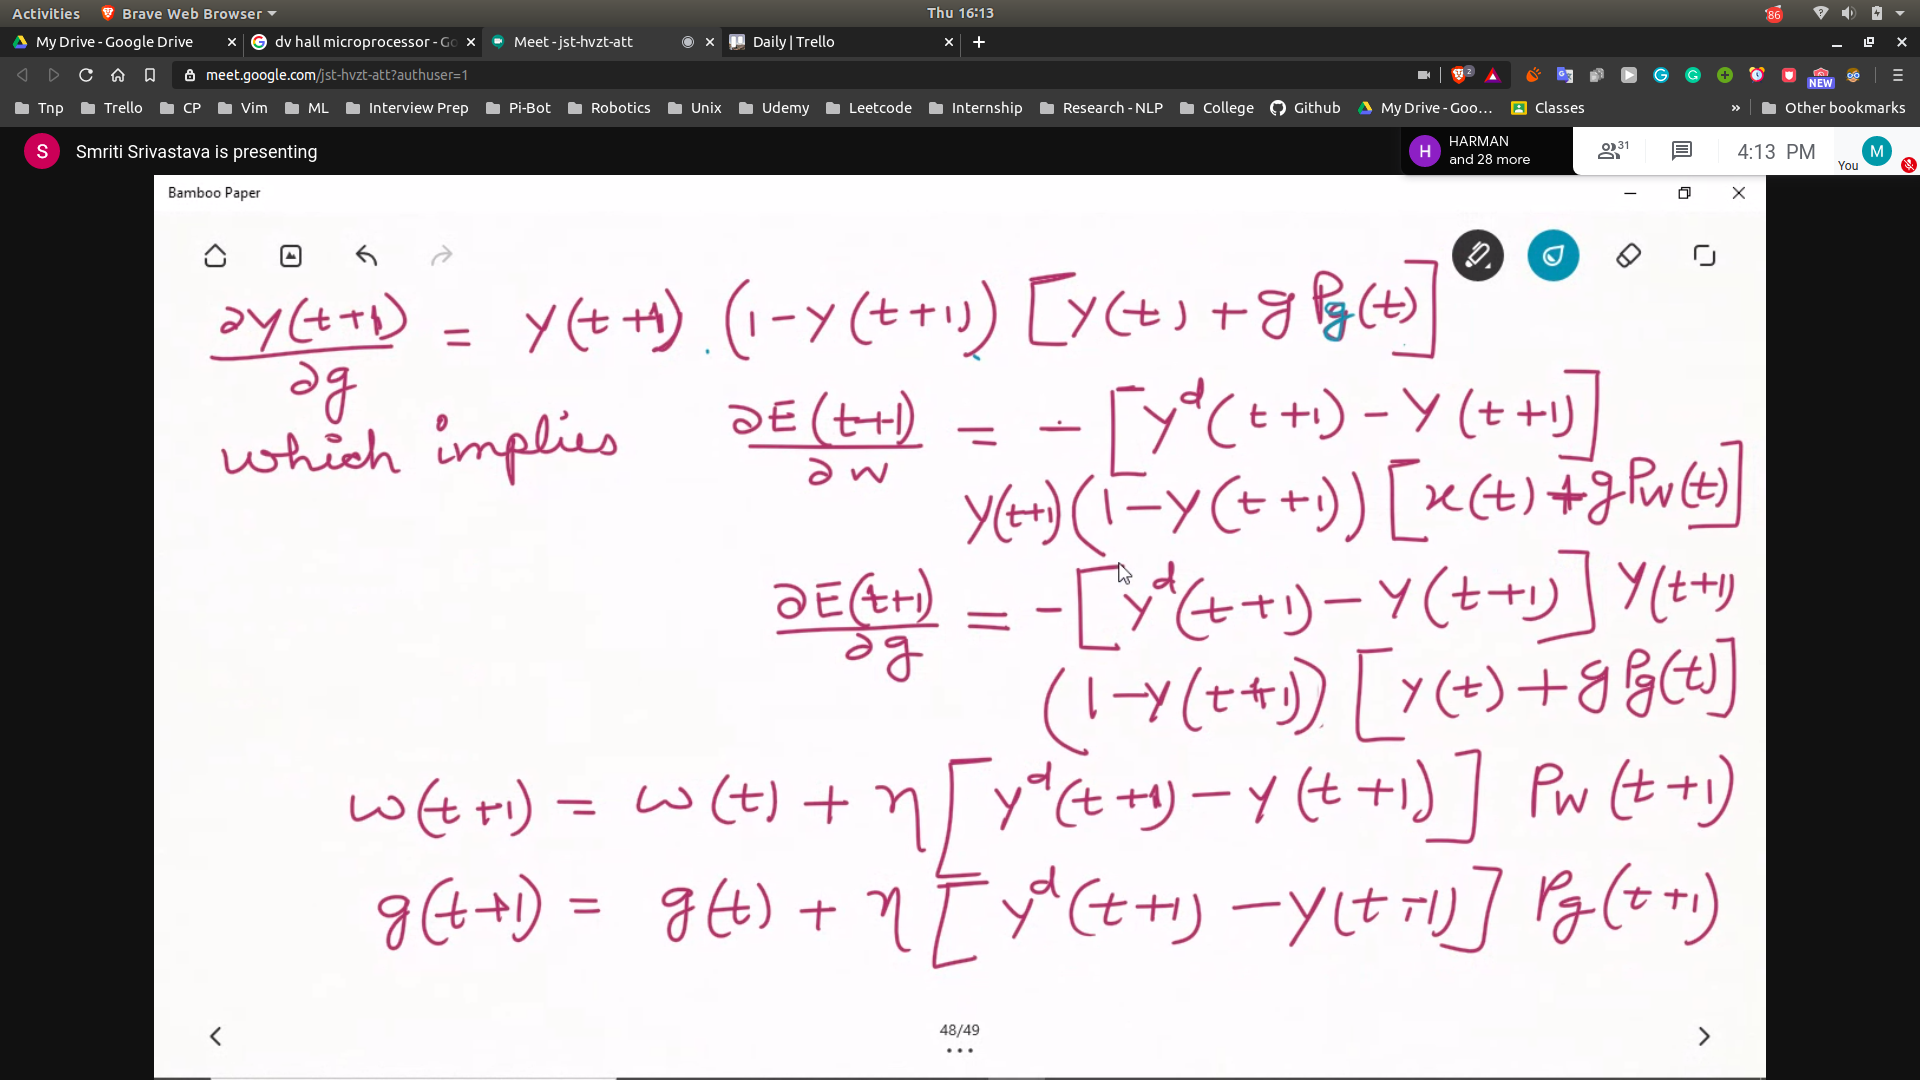 Activities Brave Web Browser Thu 16:13 86
My Drive - Google Drive dv hall microprocessor - Go Meet - jst-hvzt-att Daily | Trello
meet.google.com/jst-hvzt-att?authuser=1 2 NEW
Tnp Trello CP Vim ML Interview Prep Pi-Bot Robotics Unix Udemy Leetcode Internship Research - NLP College Github My Drive - Goo... Classes » Other bookmarks
S Smriti Srivastava is presenting H HARMAN and 28 more 31 4:13 PM You M
Bamboo Paper
∂Y(t+1)/∂g = Y(t+1) . (1-Y(t+1)) [Y(t) + g Pg(t)]
which implies ∂E(t+1)/∂w = - [Y^d(t+1) - Y(t+1)]
Y(t+1)(1-Y(t+1)) [x(t) + g Pw(t)]
∂E(t+1)/∂g = - [Y^d(t+1) - Y(t+1)] Y(t+1)
(1-Y(t+1)) [Y(t) + g Pg(t)]
w(t+1) = w(t) + η [Y^d(t+1) - Y(t+1)] Pw(t+1)
g(t+1) = g(t) + η [Y^d(t+1) - Y(t+1)] Pg(t+1)
48/49